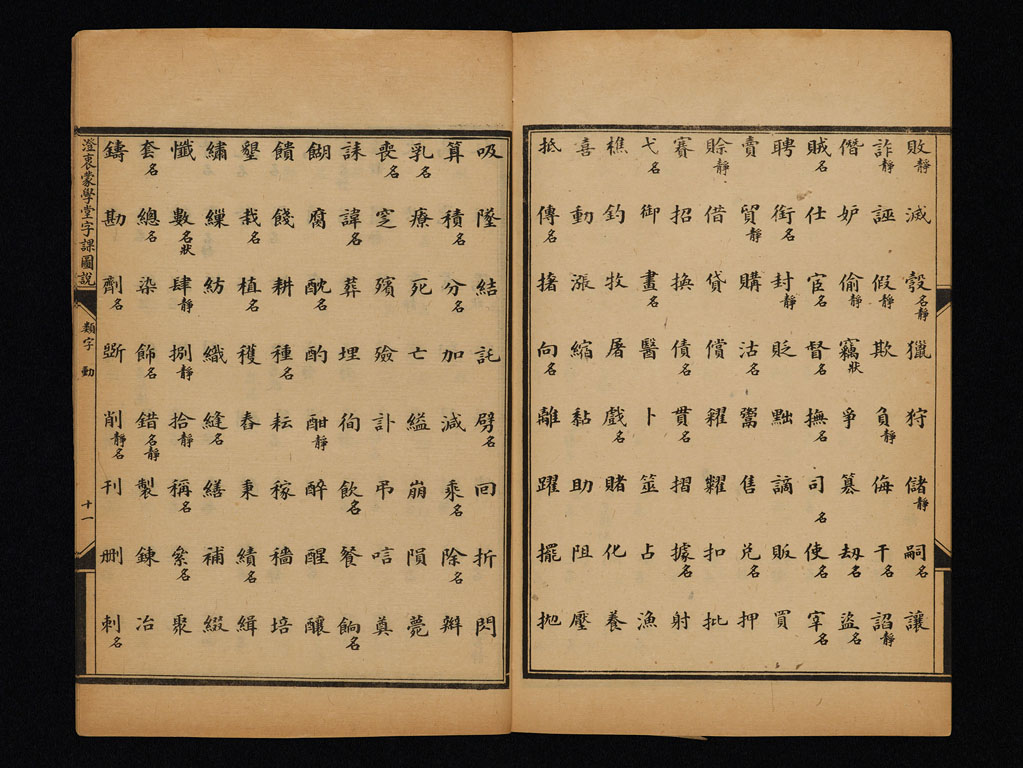 敗靜 滅 彀名靜 獵 狩 儲靜 嗣名 讓
詐靜 誣 假靜 欺 負靜 侮 干名 諂靜
僭 妒 偷靜 竊狀 爭 篡 劫名 盜名
賊名 仕 宦名 督名 撫名 司名 使名 宰名
聘 銜名 封靜 貶 黜 謫 販 買
賣 貿靜 購 沽名 鬻 售 兌名 押
賒靜 借 貸 償 糴 糶 扣 批
賽 招 換 債名 貫名 摺 據名 射
弋名 御 畫名 醫 卜 筮 占 漁
樵 釣 牧 屠 戲名 賭 化 養
喜 動 漲 縮 黏 助 阻 壓
抵 傳名 撦 向名 離 躍 擺 拋
吸 墜 結 託 劈名 回 折 閃
算 積名 分名 加 減 乘名 除名 辦
乳名 療 死 亡 縊 崩 隕 薨
喪名 窆 殯 殮 訃 弔 唁 奠
誄 諱名 葬 埋 殉 飲名 餐 餉名
餬 腐 酖名 酌 酣靜 醉 醒 釀
饋 餞 耕 種名 耘 稼 穡 培
墾 栽名 植名 穫 舂 秉 績名 緝
繡 繅 紡 織 縫名 繕 補 綴
懺 數名狀 肆靜 捌靜 拾靜 稱名 絫名 聚
套名 總名 染 飾名 錯名靜 製 鍊 冶
鑄 勘 劑名 斲 削靜名 刊 刪 刺名
澄衷蒙學堂字課圖說
類字 動
十一